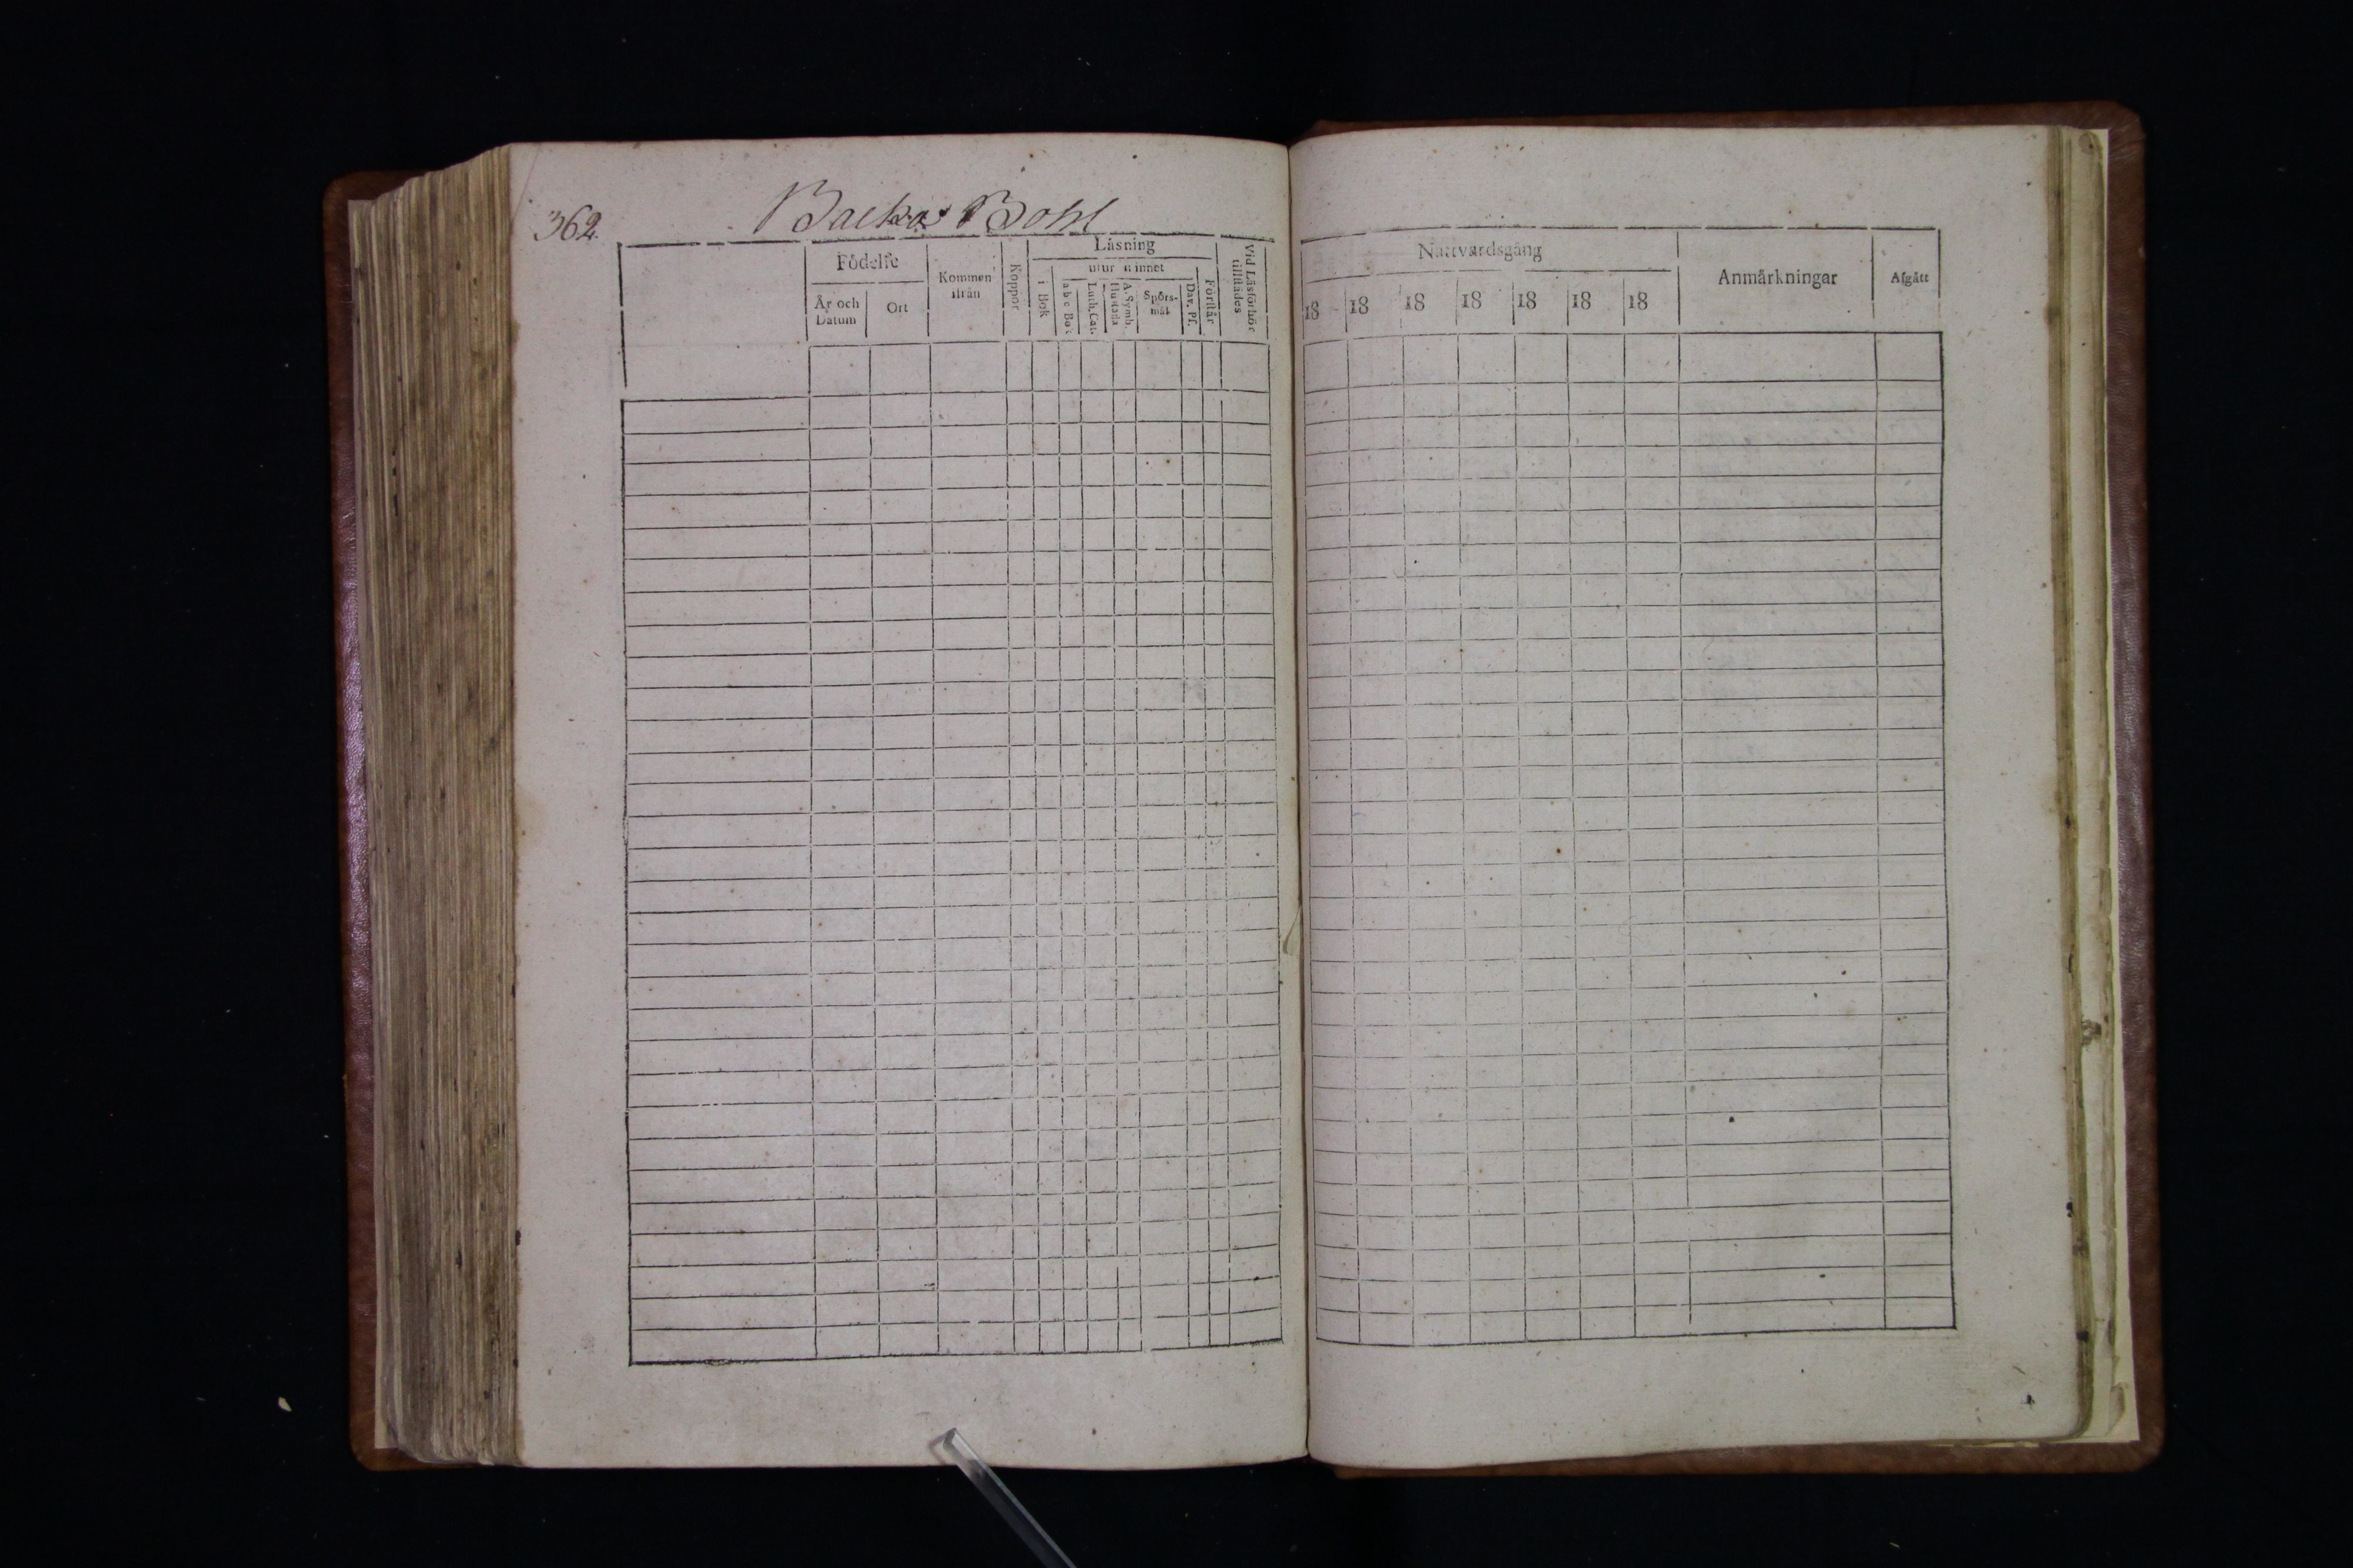 362.
Backas Bohl
Födelse
År och Datum
Ort
Kommen ifrån
Koppor
Läsning
i Bok
utur minnet
a b c Bok
Luth. Cat.
A. Symb. Hustafla
Spörs-mål
Dav. Ps.
Förstår
Vid Läsförhör tillstädes
Nattvardsgång
18 18 18 18 18 18 18
Anmärkningar
Afgått